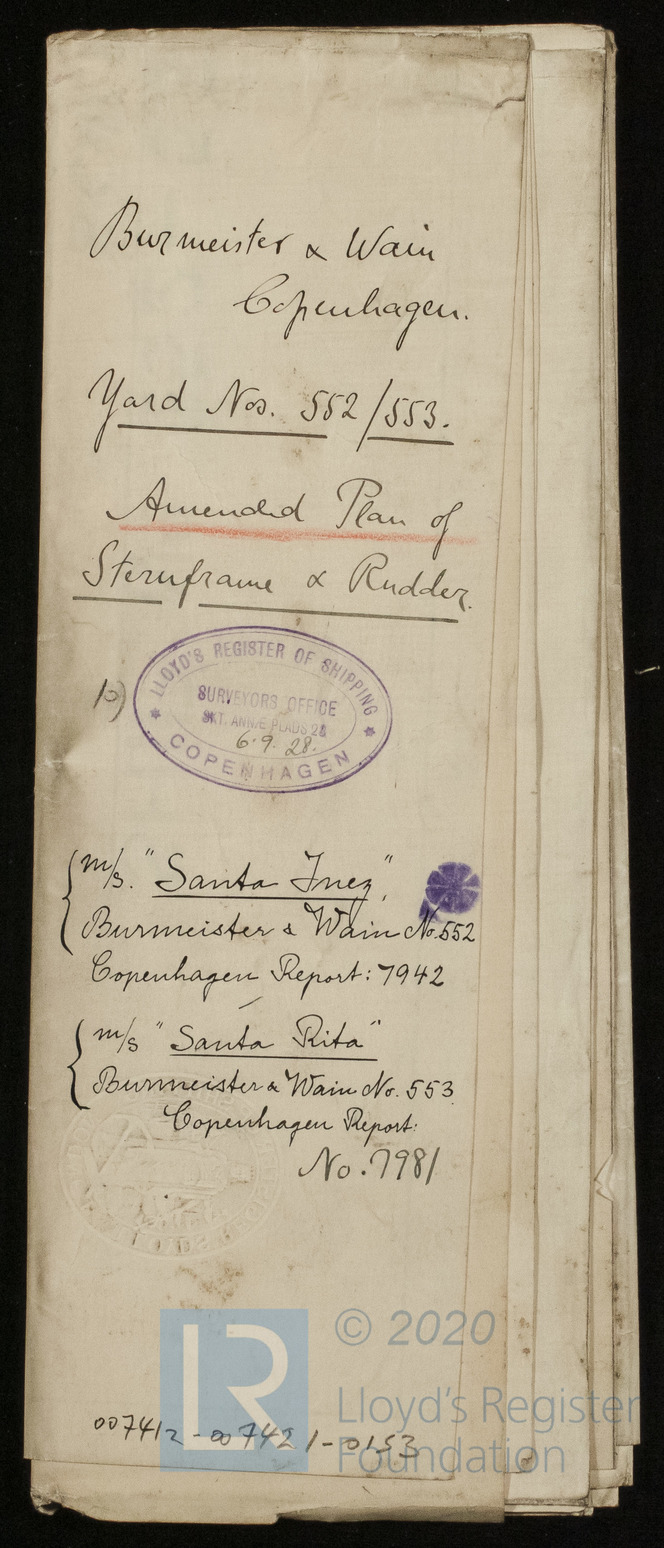 Burmeister & Wain
Copenhagen.
Yard Nos. 552/553.
Amended Plan of
Sternframe & Rudder.
10)
LLOYD'S REGISTER OF SHIPPING
SURVEYORS OFFICE
SKT. ANNÆ PLADS 28
6.9.28.
COPENHAGEN
m/s. "Santa Inez",
Burmeister & Wain No. 552
Copenhagen Report: 7942
m/s "Santa Rita"
Burmeister & Wain No. 553
Copenhagen Report:
No. 7981
LR
© 2020
Lloyd's Register
Foundation
007412-007421-0153